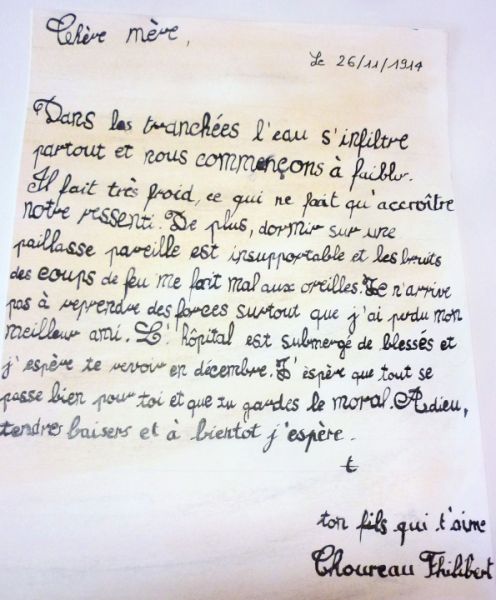 Chère mère,
Le 26/11/1914
Dans les tranchées l'eau s'infiltre
partout et nous commençons à faiblir.
Il fait très froid, ce qui ne fait qu'accroître
notre ressenti. De plus, dormir sur une
paillasse pareille est insupportable et les bruits
des coups de feu me fait mal aux oreilles. Je n'arrive
pas à reprendre des forces surtout que j'ai perdu mon
meilleur ami. L'hôpital est submergé de blessés et
j'espère te revoir en décembre. J'éspère que tout se
passe bien pour toi et que tu gardes le moral. Adieu,
tendres baisers et à bientot j'espère.
t
ton fils qui t'aime
Choureau Philibert